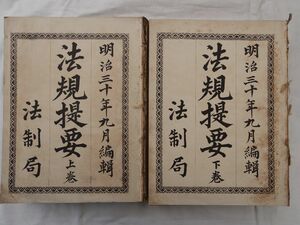 明治三十年九月編輯
法規提要上巻
法制局
明治三十年九月編輯
法規提要下巻
法制局